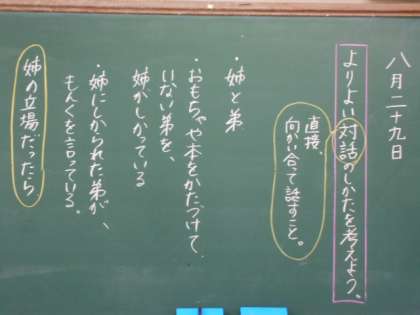 八月二十九日
よりよい対話のしかたを考えよう。
直接、
向かい合って話すこと。
・姉と弟
・おもちゃや本をかたづけて
いない弟を、
姉がしかっている
・姉にしかられた弟が、
もんくを言っている。
姉の立場だったら